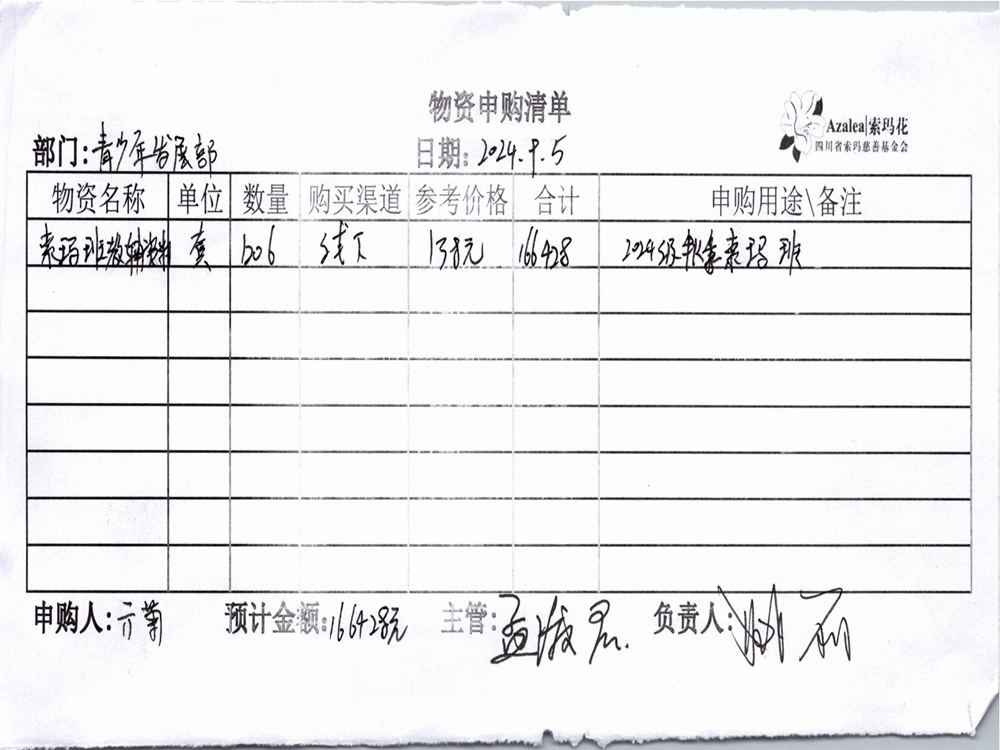 物资申购清单
Azalea|索玛花
四川省索玛慈善基金会
部门:青少年发展部 日期:2024.9.5
物资名称 单位 数量 购买渠道 参考价格 合计 申购用途\备注
索玛班教辅资料 套 1206 线下 138元 166428 2024级秋季索玛班
申购人: 预计金额:166428元 主管: 负责人: